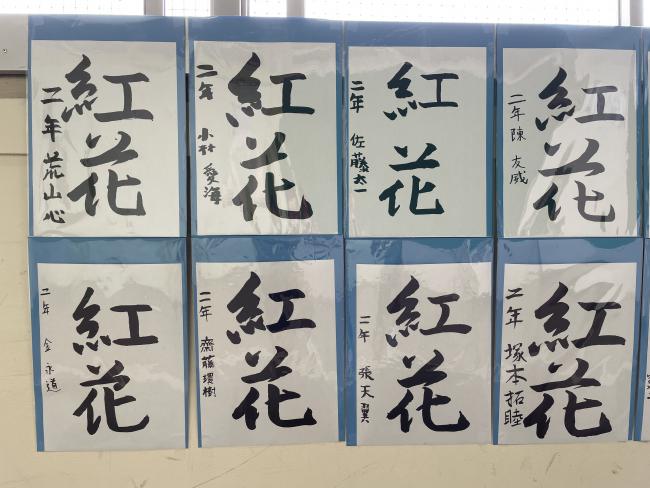 紅花
二年 荒山心
紅花
二年 小林 愛海
紅花
二年 佐藤太一
紅花
二年 陳 友威
紅花
二年 金 永道
紅花
二年 齋藤環樹
紅花
二年 張天翼
紅花
二年 塚本拓睦